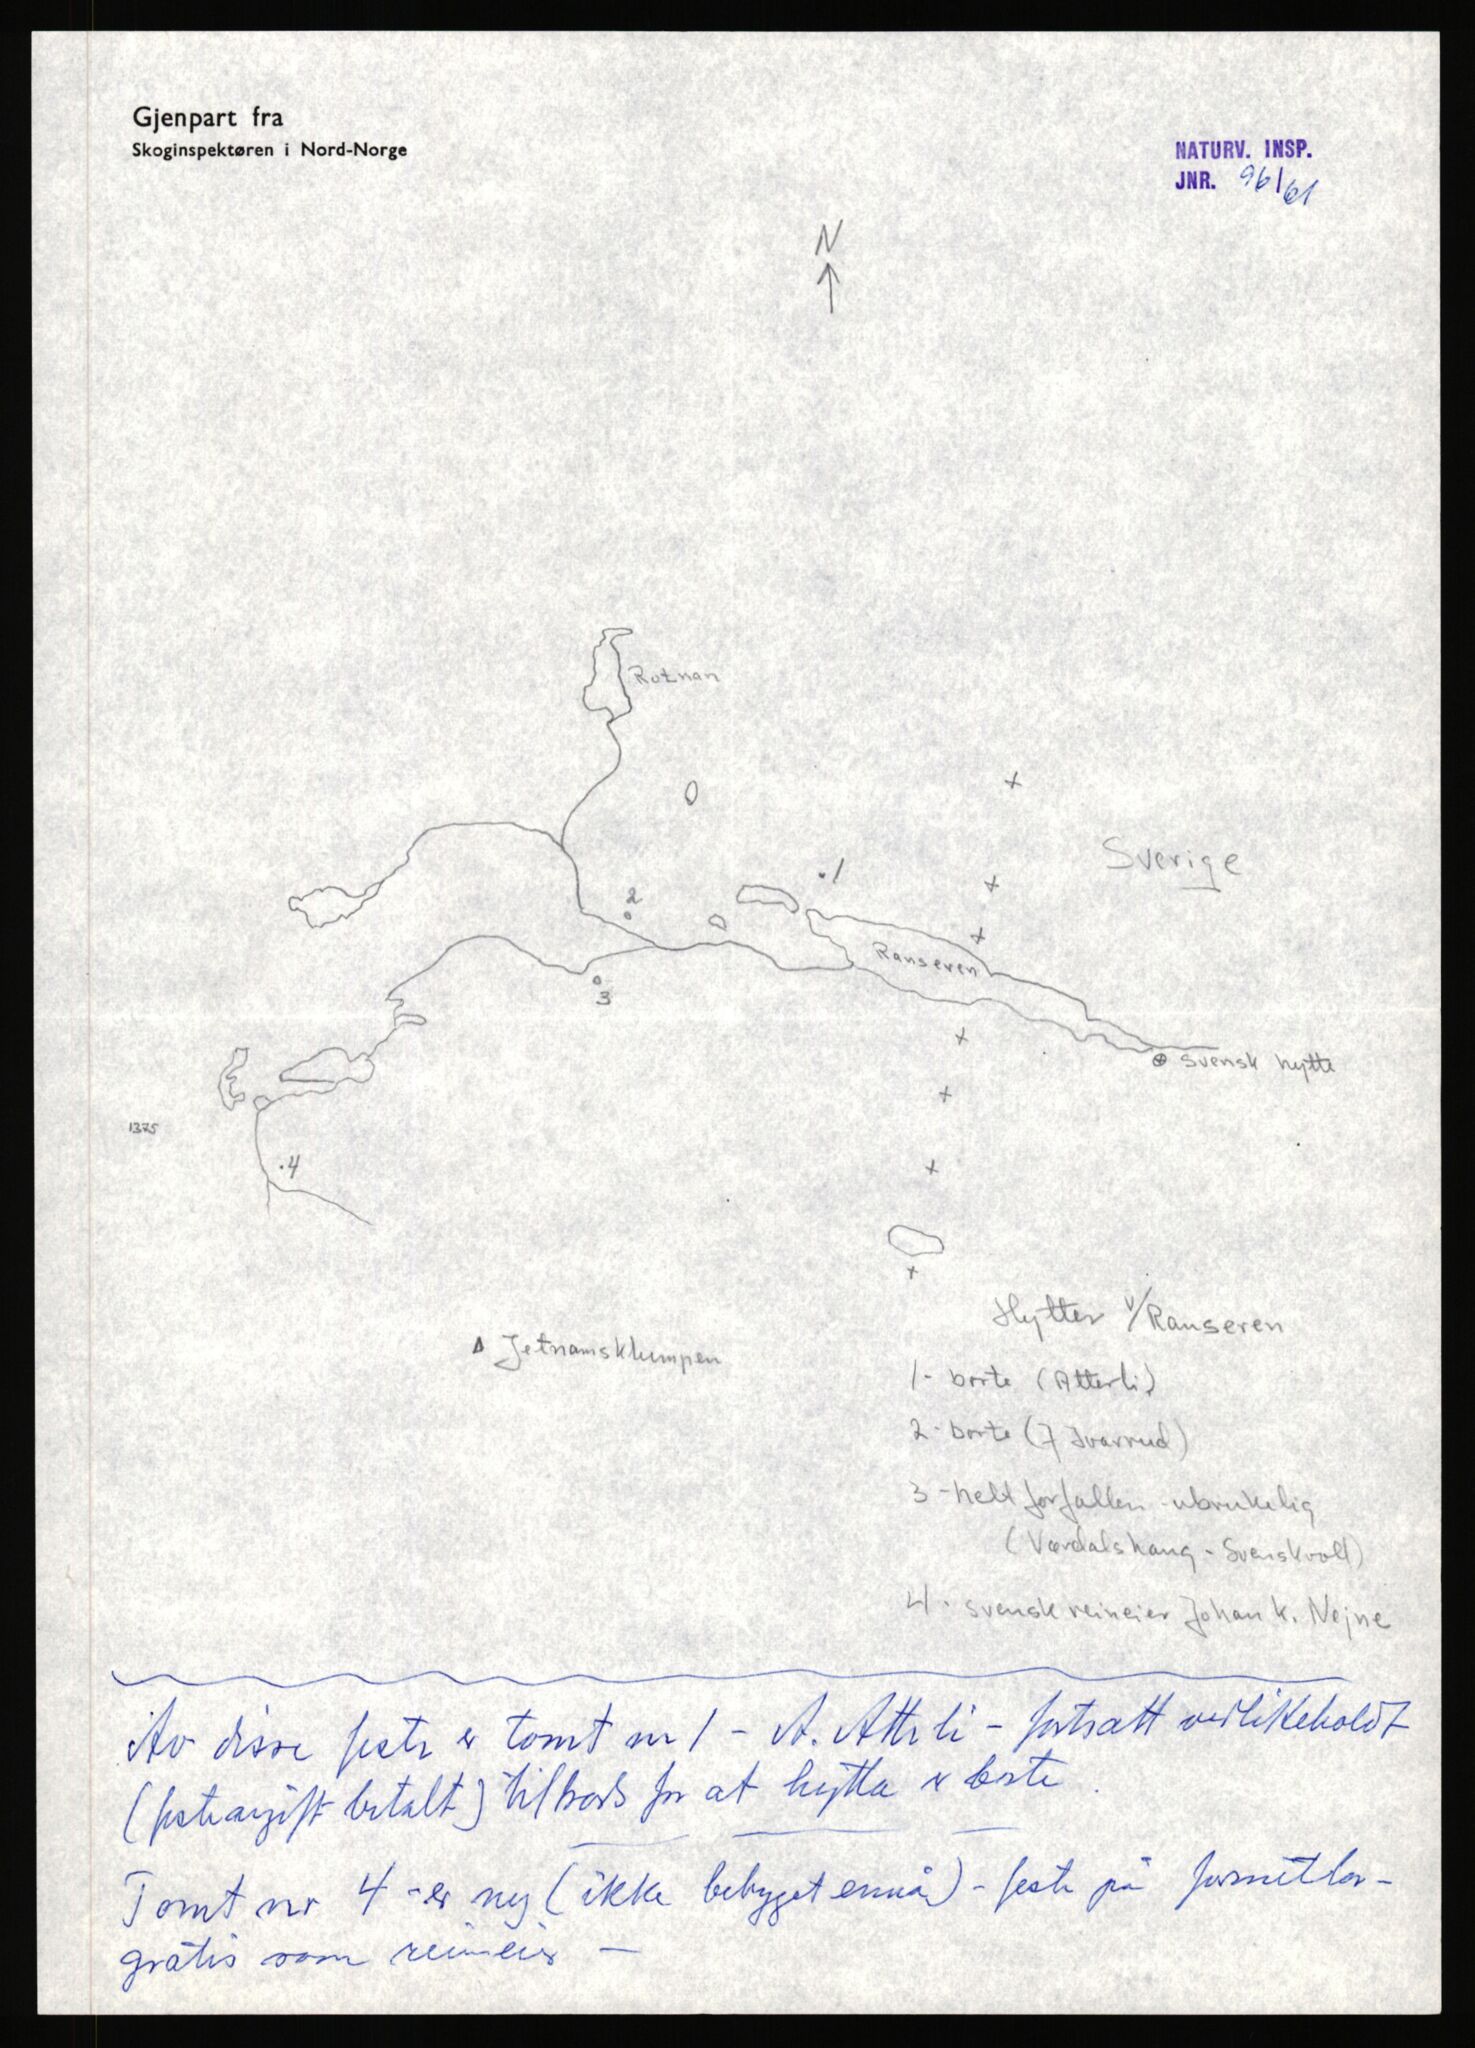 Gjenpart fra
Skoginspektøren i Nord-Norge
NATURV. INSP.
JNR. 96/61
N
Rotnan
Sverige
.1
2
Ranseren
3
Svensk hytte
1375
.4
Hytter v/Ranseren
Jetnamsklumpen
1- borte (Atterli)
2- borte (J Ivarrud)
3 - helt forfallen - ubrukelig
(Værdalshaug - Svenskvoll)
4. svensk reineier Johan K. Nejne
Av disse feste er tomt nr 1 - A. Atterli - fortsatt vedlikeholdt
(festeavgift betalt) tiltross for at hytta er borte.
Tomt nr 4 - er ny (ikke bebygget ennå) - feste på
gratis som reineier -